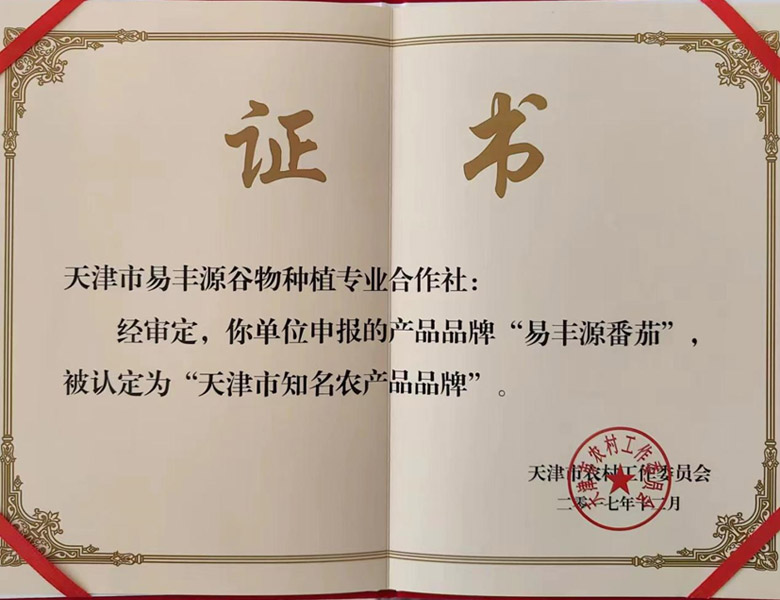 证书
天津市易丰源谷物种植专业合作社：
经审定，你单位申报的产品品牌“易丰源番茄”，
被认定为“天津市知名农产品品牌”。
天津市农村工作委员会
二零一七年十二月
天津市农村工作委员会